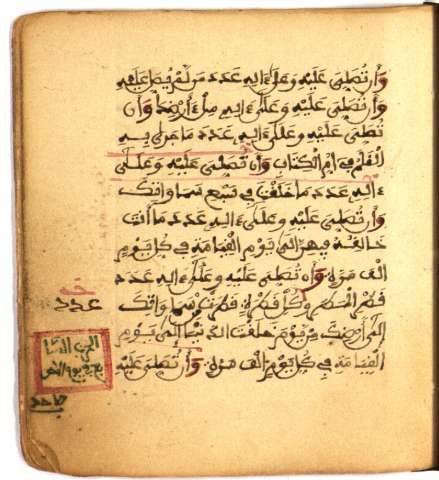 وأن تصلي عليه وعلى ءاله عدد من لم يصل عليه
وأن تصلي عليه وعلى ءاله ملء أرضك وأن
تصلي عليه وعلى ءاله عدد ما جرى به
القلم في أم الكتاب وأن تصلي عليه وعلى
ءاله عدد ما خلقت في سبع سماواتك
وأن تصلي عليه وعلى ءاله عدد ما أنت
خالقه فيهن إلى يوم القيامة في كل يوم
ألف مرة وأن تصلي عليه وعلى ءاله عدد
قطر المطر وكل قطرة قطرت سماواتك
إلى أرضك من يوم خلقت الدنيا إلى يوم
القيامة في كل يوم ألف مرة وأن تصلي عليه
عدد